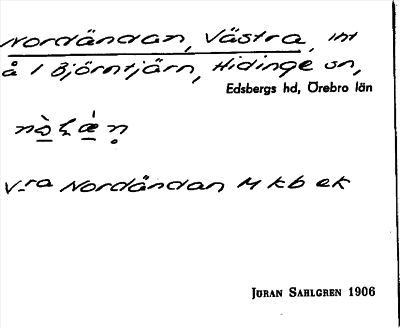 Nordändan, Västra, int
å i Björntjärn, Hidinge sn,
Edsbergs hd, Örebro län
V-ra Nordändan M kb ek
Jöran Sahlgren 1906